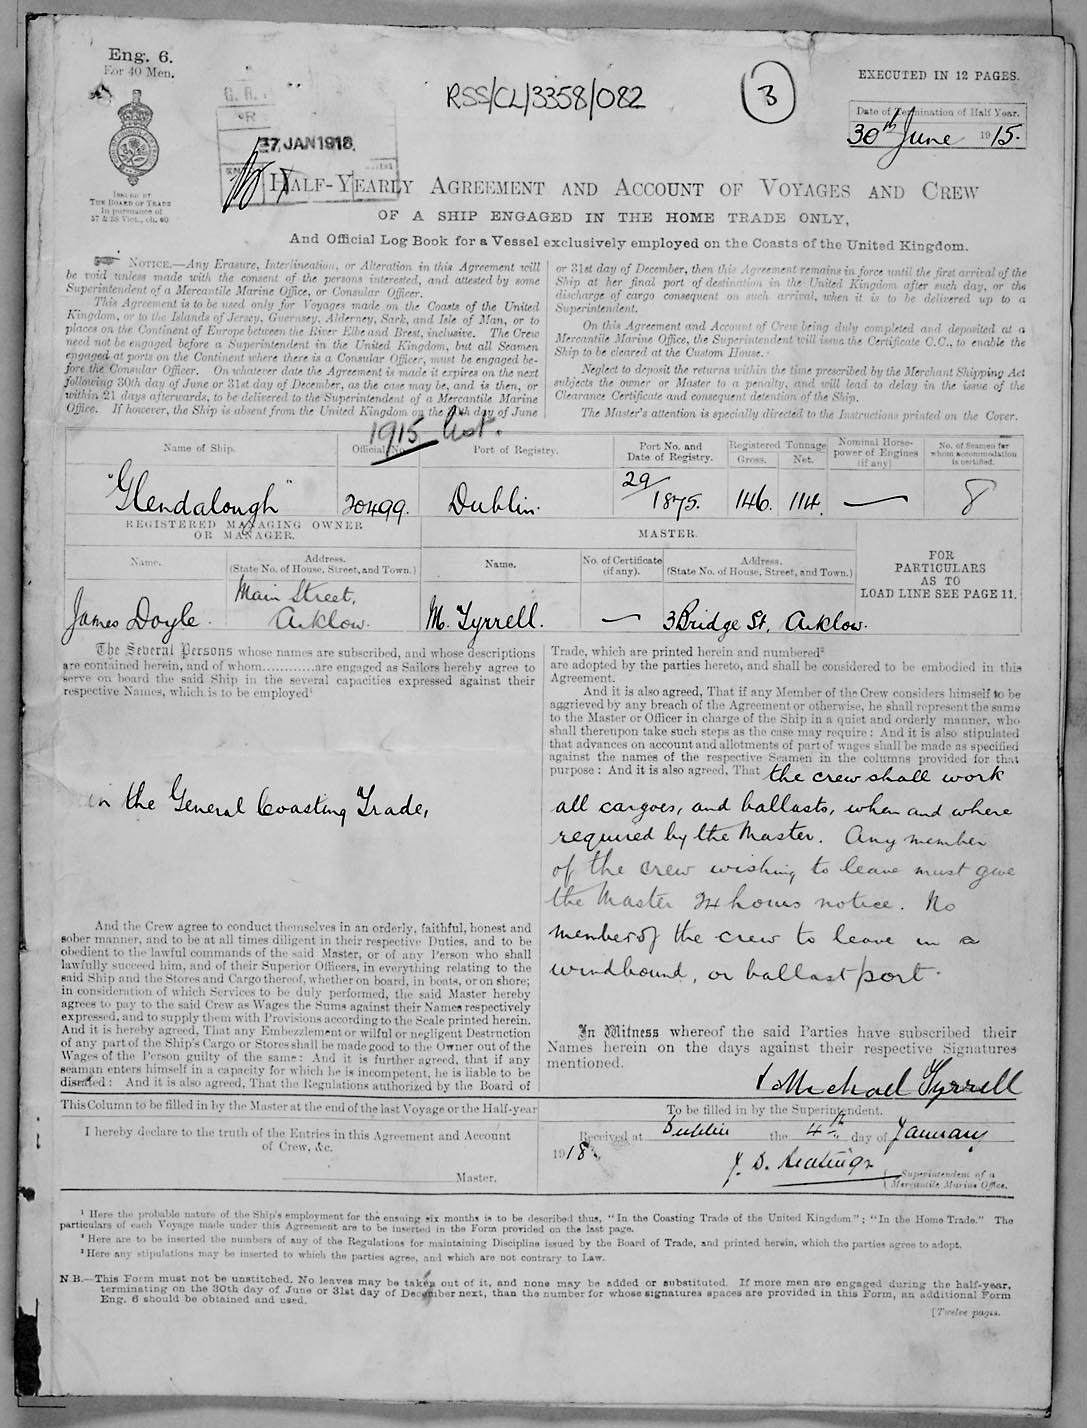 Eng. 6.
For 40 Men.
RSS/CL/3358/082
3
EXECUTED IN 12 PAGES.
Date of Termination of Half Year.
30th June 1915.
7 JAN 1918
ISSUED BY
THE BOARD OF TRADE
In pursuance of
57 & 58 Vict., ch. 60
HALF-YEARLY AGREEMENT AND ACCOUNT OF VOYAGES AND CREW
OF A SHIP ENGAGED IN THE HOME TRADE ONLY,
And Official Log Book for a Vessel exclusively employed on the Coasts of the United Kingdom.
NOTICE.—Any Erasure, Interlineation, or Alteration in this Agreement will
be void unless made with the consent of the persons interested, and attested by some
Superintendent of a Mercantile Marine Office, or Consular Officer.
This Agreement is to be used only for Voyages made on the Coasts of the United
Kingdom, or to the Islands of Jersey, Guernsey, Alderney, Sark, and Isle of Man, or to
places on the Continent of Europe between the River Elbe and Brest, inclusive. The Crew
need not be engaged before a Superintendent in the United Kingdom, but all Seamen
engaged at ports on the Continent where there is a Consular Officer, must be engaged be-
fore the Consular Officer. On whatever date the Agreement is made it expires on the next
following 30th day of June or 31st day of December, as the case may be, and is then, or
within 21 days afterwards, to be delivered to the Superintendent of a Mercantile Marine
Office. If however, the Ship is absent from the United Kingdom on the 30th day of June
or 31st day of December, then this Agreement remains in force until the first arrival of the
Ship at her final port of destination in the United Kingdom after such day, or the
discharge of cargo consequent on such arrival, when it is to be delivered up to a
Superintendent.
On this Agreement and Account of Crew being duly completed and deposited at a
Mercantile Marine Office, the Superintendent will issue the Certificate C.C., to enable the
Ship to be cleared at the Custom House.
Neglect to deposit the returns within the time prescribed by the Merchant Shipping Act
subjects the owner or Master to a penalty, and will lead to delay in the issue of the
Clearance Certificate and consequent detention of the Ship.
The Master's attention is specially directed to the Instructions printed on the Cover.
1915 list.
Name of Ship. Official No. Port of Registry. Port No. and Date of Registry. Registered Tonnage Gross. Net. Nominal Horse-power of Engines (if any) No. of Seamen for whom accommodation is certified.
"Glendalough" 20499. Dublin. 29/1875. 146. 114. — 8
REGISTERED MANAGING OWNER
OR MANAGER.
MASTER.
Name. Address. (State No. of House, Street, and Town.) Name. No. of Certificate (if any). Address. (State No. of House, Street, and Town.)
FOR
PARTICULARS
AS TO
LOAD LINE SEE PAGE 11.
James Doyle. Main Street, Arklow. M. Tyrrell. — 3 Bridge St, Arklow.
The Several Persons whose names are subscribed, and whose descriptions
are contained herein, and of whom............are engaged as Sailors hereby agree to
serve on board the said Ship in the several capacities expressed against their
respective Names, which is to be employed¹
in the General Coasting Trade,
And the Crew agree to conduct themselves in an orderly, faithful, honest and
sober manner, and to be at all times diligent in their respective Duties, and to be
obedient to the lawful commands of the said Master, or of any Person who shall
lawfully succeed him, and of their Superior Officers, in everything relating to the
said Ship and the Stores and Cargo thereof, whether on board, in boats, or on shore;
in consideration of which Services to be duly performed, the said Master hereby
agrees to pay to the said Crew as Wages the Sums against their Names respectively
expressed, and to supply them with Provisions according to the Scale printed herein.
And it is hereby agreed, That any Embezzlement or wilful or negligent Destruction
of any part of the Ship's Cargo or Stores shall be made good to the Owner out of the
Wages of the Person guilty of the same: And it is further agreed, that if any
seaman enters himself in a capacity for which he is incompetent, he is liable to be
disrated: And it is also agreed, That the Regulations authorized by the Board of
Trade, which are printed herein and numbered²
are adopted by the parties hereto, and shall be considered to be embodied in this
Agreement.
And it is also agreed, That if any Member of the Crew considers himself to be
aggrieved by any breach of the Agreement or otherwise, he shall represent the same
to the Master or Officer in charge of the Ship in a quiet and orderly manner, who
shall thereupon take such steps as the case may require: And it is also stipulated
that advances on account and allotments of part of wages shall be made as specified
against the names of the respective Seamen in the columns provided for that
purpose: And it is also agreed, That the crew shall work
all cargoes, and ballasts, when and where
required by the Master. Any member
of the crew wishing to leave must give
the Master 24 hours notice. No
members of the crew to leave in a
windbound, or ballast port.
In Witness whereof the said Parties have subscribed their
Names herein on the days against their respective Signatures
mentioned.
Michael Tyrrell
This Column to be filled in by the Master at the end of the last Voyage or the Half-year
I hereby declare to the truth of the Entries in this Agreement and Account
of Crew, &c.
Master.
To be filled in by the Superintendent.
Received at Dublin the 4th day of January
1918
Superintendent of a
Mercantile Marine Office.
¹ Here the probable nature of the Ship's employment for the ensuing six months is to be described thus, "In the Coasting Trade of the United Kingdom"; "In the Home Trade." The
particulars of each Voyage made under this Agreement are to be inserted in the Form provided on the last page.
² Here are to be inserted the numbers of any of the Regulations for maintaining Discipline issued by the Board of Trade, and printed herein, which the parties agree to adopt.
³ Here any stipulations may be inserted to which the parties agree, and which are not contrary to Law.
N.B.—This Form must not be unstitched. No leaves may be taken out of it, and none may be added or substituted. If more men are engaged during the half-year,
terminating on the 30th day of June or 31st day of December next, than the number for whose signatures spaces are provided in this Form, an additional Form
Eng. 6 should be obtained and used.
[Twelve pages.